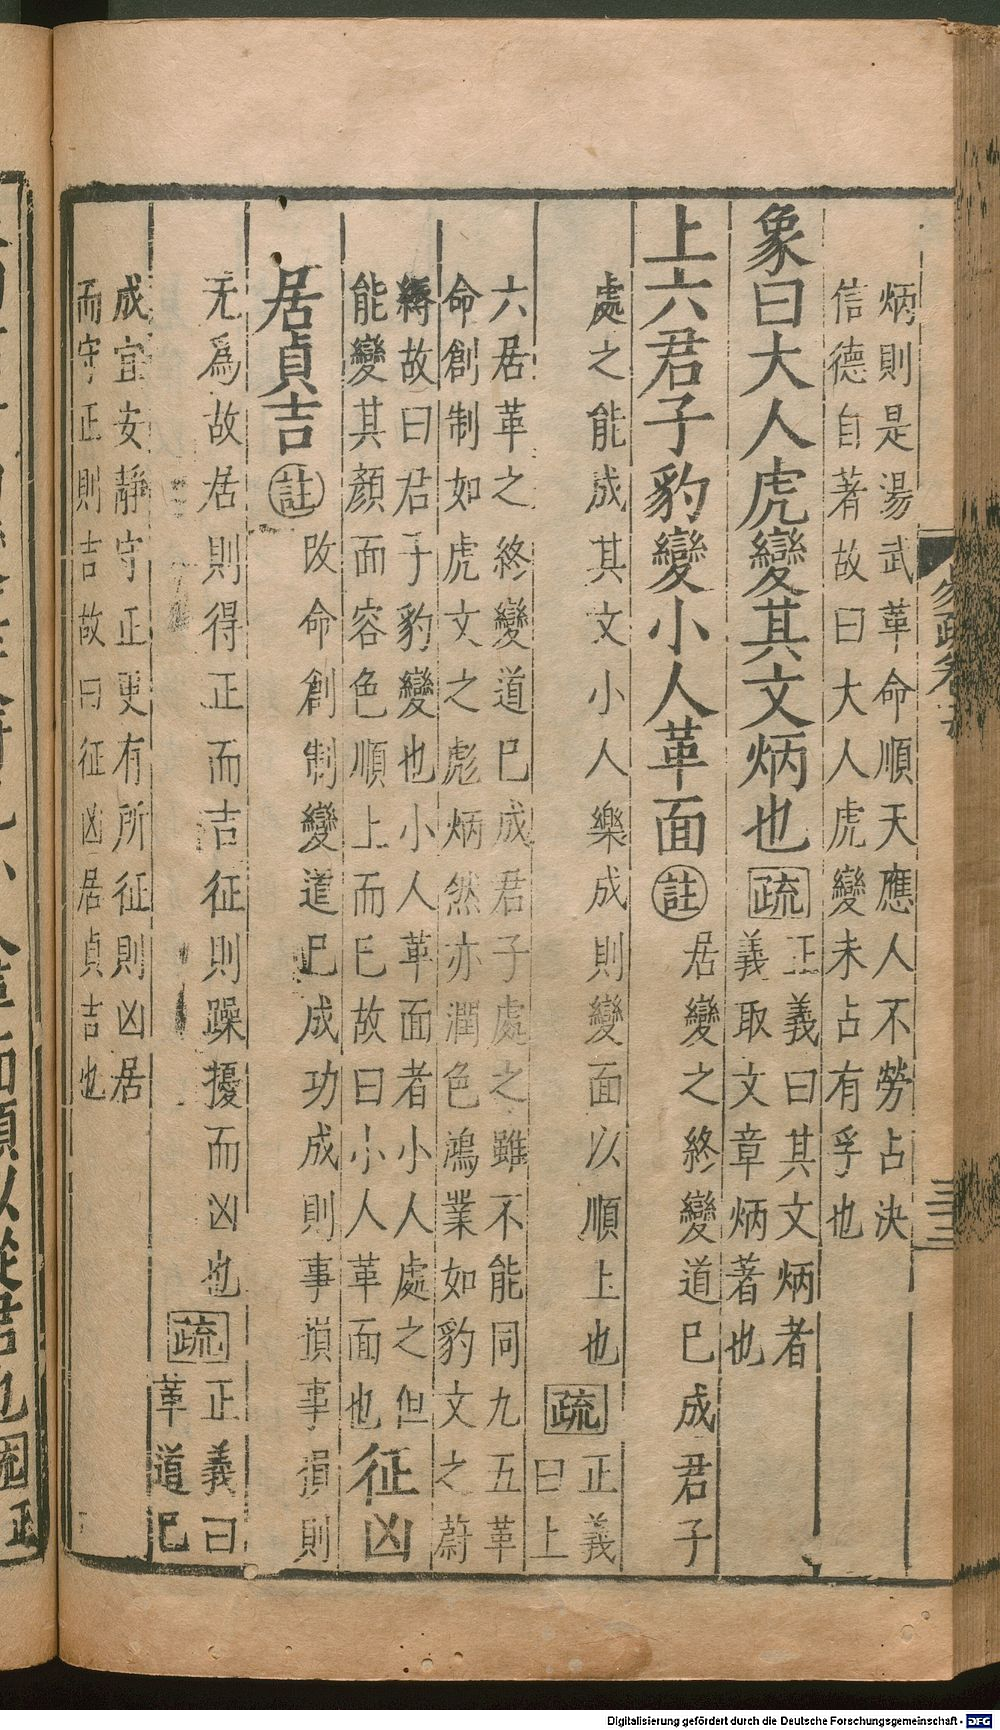 炳則是湯武革命順天應人不勞占決
信德自著故曰大人虎變未占有孚也
象曰大人虎變其文炳也疏
正義曰其文炳者
義取文章炳著也
上六君子豹變小人革面註居變之終變道已成君子
處之能成其文小人樂成則變面以順上也疏
正義
曰上
六居革之終變道已成君子處之雖不能同九五革
命創制如虎文之彪炳然亦潤色鴻業如豹文之蔚
縟故曰君子豹變也小人革面者小人處之但
能變其顏面容色順上而已故曰小人革面也
征凶
居貞吉註改命創制變道已成功成則事損事損則
无爲故居則得正而吉征則躁擾而凶也疏
正義曰
革道已
成宜安靜守正更有所征則凶居
而守正則吉故曰征凶居貞吉也
易疏卷
三三
Digitalisierung gefördert durch die Deutsche Forschungsgemeinschaft - DFG